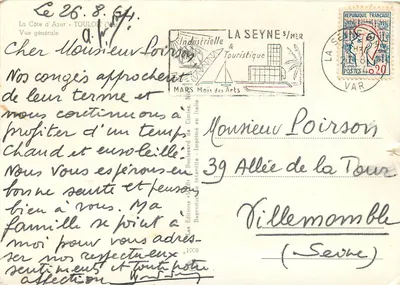 Le 26.8.64.
La Côte d'Azur - TOULON
Vue générale
Cher Monsieur Poirson
Nos congés approchent
de leur terme et
nous continuons à
profiter d'un temps
chaud et ensoleillé.
Nous vous espérons en
bonne santé et pensons
bien à vous. Ma
famille se joint à
moi pour vous adres-
ser mes respectueux
sentiments et toute notre
affection
Industrielle
&
Touristique
LA SEYNE S/MER
MARS Mois des Arts
LA SEYNE
VAR
REPUBLIQUE FRANÇAISE
POSTES
0,20
Monsieur Poirson
39 Allée de la Tour
Villemomble
(Seine)